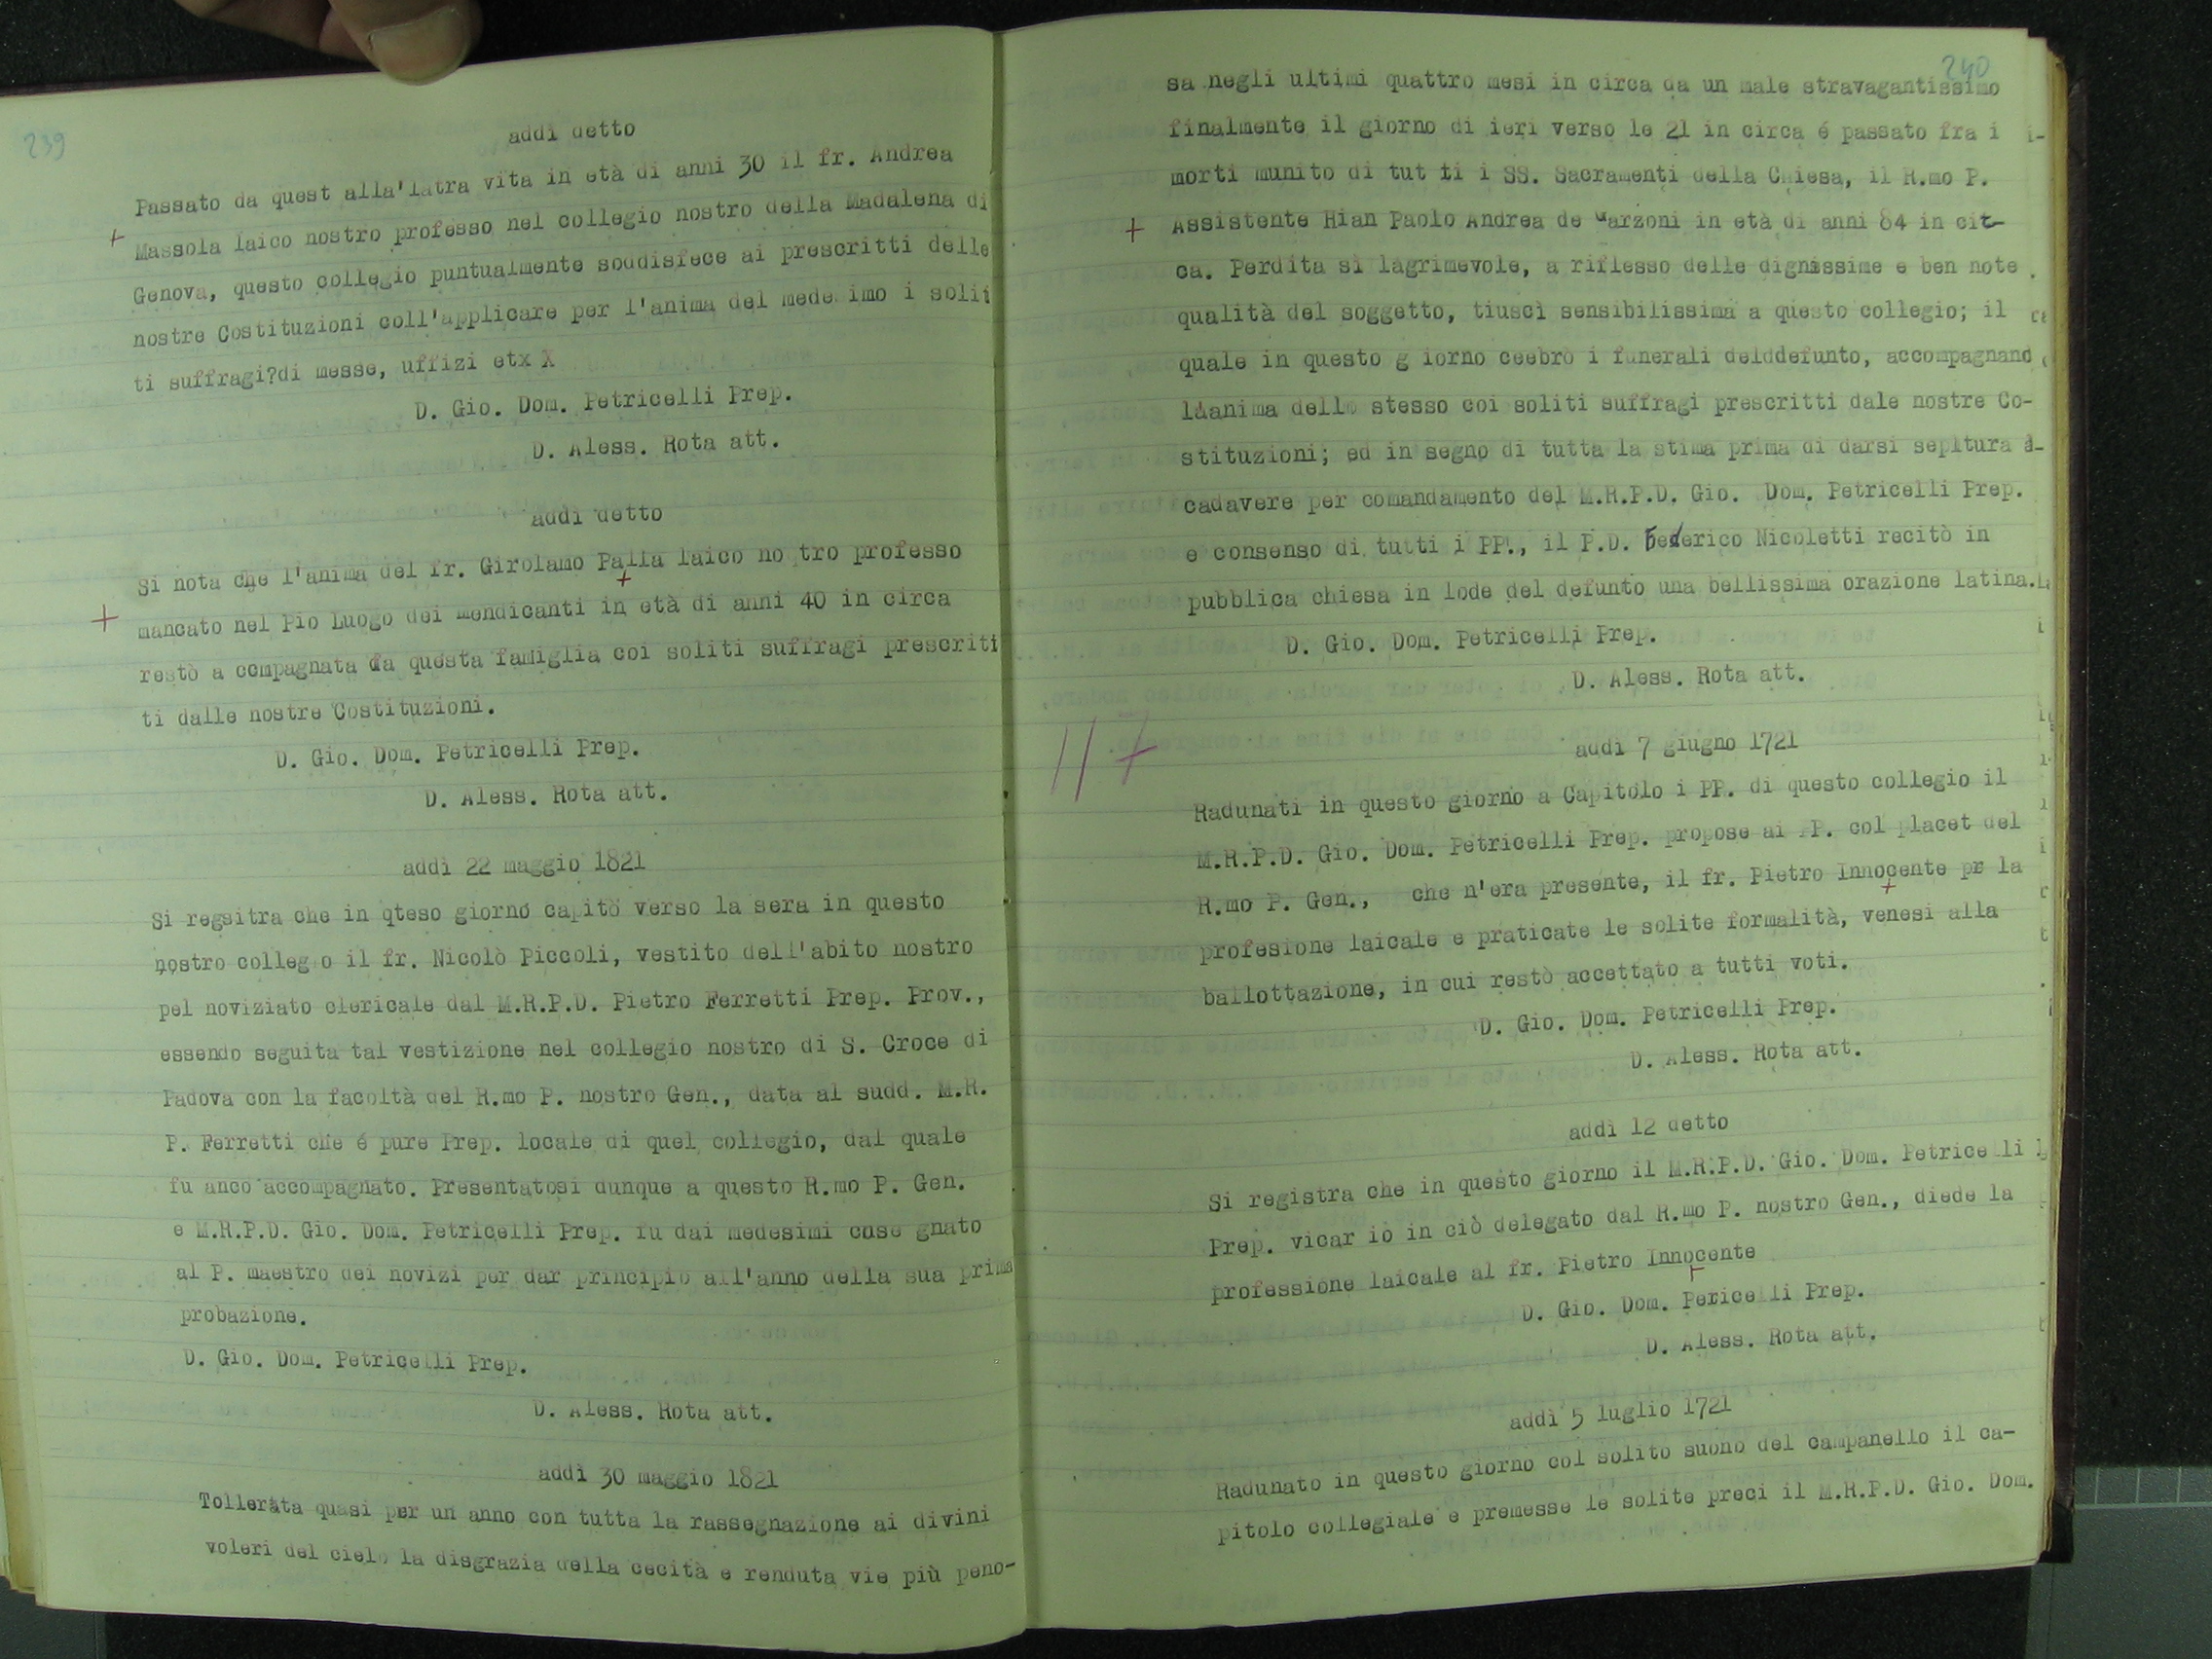 239
addì detto
Passato da quest alla'latra vita in età di anni 30 il fr. Andrea
Massola laico nostro professo nel collegio nostro della Madalena di
Genova, questo collegio puntualmente soddisfece ai prescritti delle
nostre Costituzioni coll'applicare per l'anima del mede imo i solit
ti suffragi?di messe, uffizi etx X
D. Gio. Dom. Petricelli Prep.
D. Aless. Rota att.
addì detto
Si nota che l'anima del fr. Girolamo Palla laico no tro professo
mancato nel Pio Luogo dei mendicanti in età di anni 40 in circa
restò a compagnata da questa famiglia coi soliti suffragi prescritt
ti dalle nostre Costituzioni.
D. Gio. Dom. Petricelli Prep.
D. Aless. Rota att.
addì 22 maggio 1821
Si regsitra che in qteso giorno capitò verso la sera in questo
nostro collegio il fr. Nicolò Piccoli, vestito dell'abito nostro
pel noviziato clericale dal M.R.P.D. Pietro Ferretti Prep. Prov.,
essendo seguita tal vestizione nel collegio nostro di S. Croce di
Padova con la facoltà del R.mo P. nostro Gen., data al sudd. M.R.
P. Ferretti che é pure Prep. locale di quel collegio, dal quale
fu anco accompagnato. Presentatosi dunque a questo R.mo P. Gen.
e M.R.P.D. Gio. Dom. Petricelli Prep. fu dai medesimi cose gnato
al P. maestro dei novizi per dar principio all'anno della sua prima
probazione.
D. Gio. Dom. Petricelli Prep.
D. Aless. Rota att.
addì 30 maggio 1821
Tollerata quasi per un anno con tutta la rassegnazione ai divini
voleri del cielo la disgrazia della cecità e renduta vie più peno-
240
sa negli ultimi quattro mesi in circa da un male stravagantissimo
finalmente il giorno di ieri verso le 21 in circa é passato fra i
morti munito di tut ti i SS. Sacramenti della Chiesa, il R.mo P.
Assistente Hian Paolo Andrea de Marzoni in età di anni 84 in cit-
ca. Perdita sì lagrimevole, a riflesso delle dignissime e ben note
qualità del soggetto, tiuscì sensibilissima a questo collegio; il
quale in questo g iorno ceebrò i funerali delddefunto, accompagnand
l'anima dello stesso coi soliti suffragi prescritti dale nostre Co-
stituzioni; ed in segno di tutta la stima prima di darsi sepltura
cadavere per comandamento del M.R.P.D. Gio. Dom. Petricelli Prep.
e consenso di tutti i PP., il P.D. Federico Nicoletti recitò in
pubblica chiesa in lode del defunto una bellissima orazione latina.
D. Gio. Dom. Petricelli Prep.
D. Aless. Rota att.
addì 7 giugno 1721
Radunati in questo giorno a Capitolo i PP. di questo collegio il
M.R.P.D. Gio. Dom. Petricelli Prep. propose ai PP. col placet del
R.mo P. Gen., che n'era presente, il fr. Pietro Innocente pr la
profesione laicale e praticate le solite formalità, venesi alla
ballottazione, in cui restò accettato a tutti voti.
D. Gio. Dom. Petricelli Prep.
D. Aless. Rota att.
addì 12 detto
Si registra che in questo giorno il M.R.P.D. Gio. Dom. Petricelli
Prep. vicar iò in ciò delegato dal R.mo P. nostro Gen., diede la
professione laicale al fr. Pietro Innocente
D. Gio. Dom. Pericelli Prep.
D. Aless. Rota att.
addì 5 luglio 1721
Radunato in questo giorno col solito suono del campanello il ca-
pitolo collegiale e premesse le solite preci il M.R.P.D. Gio. Dom.